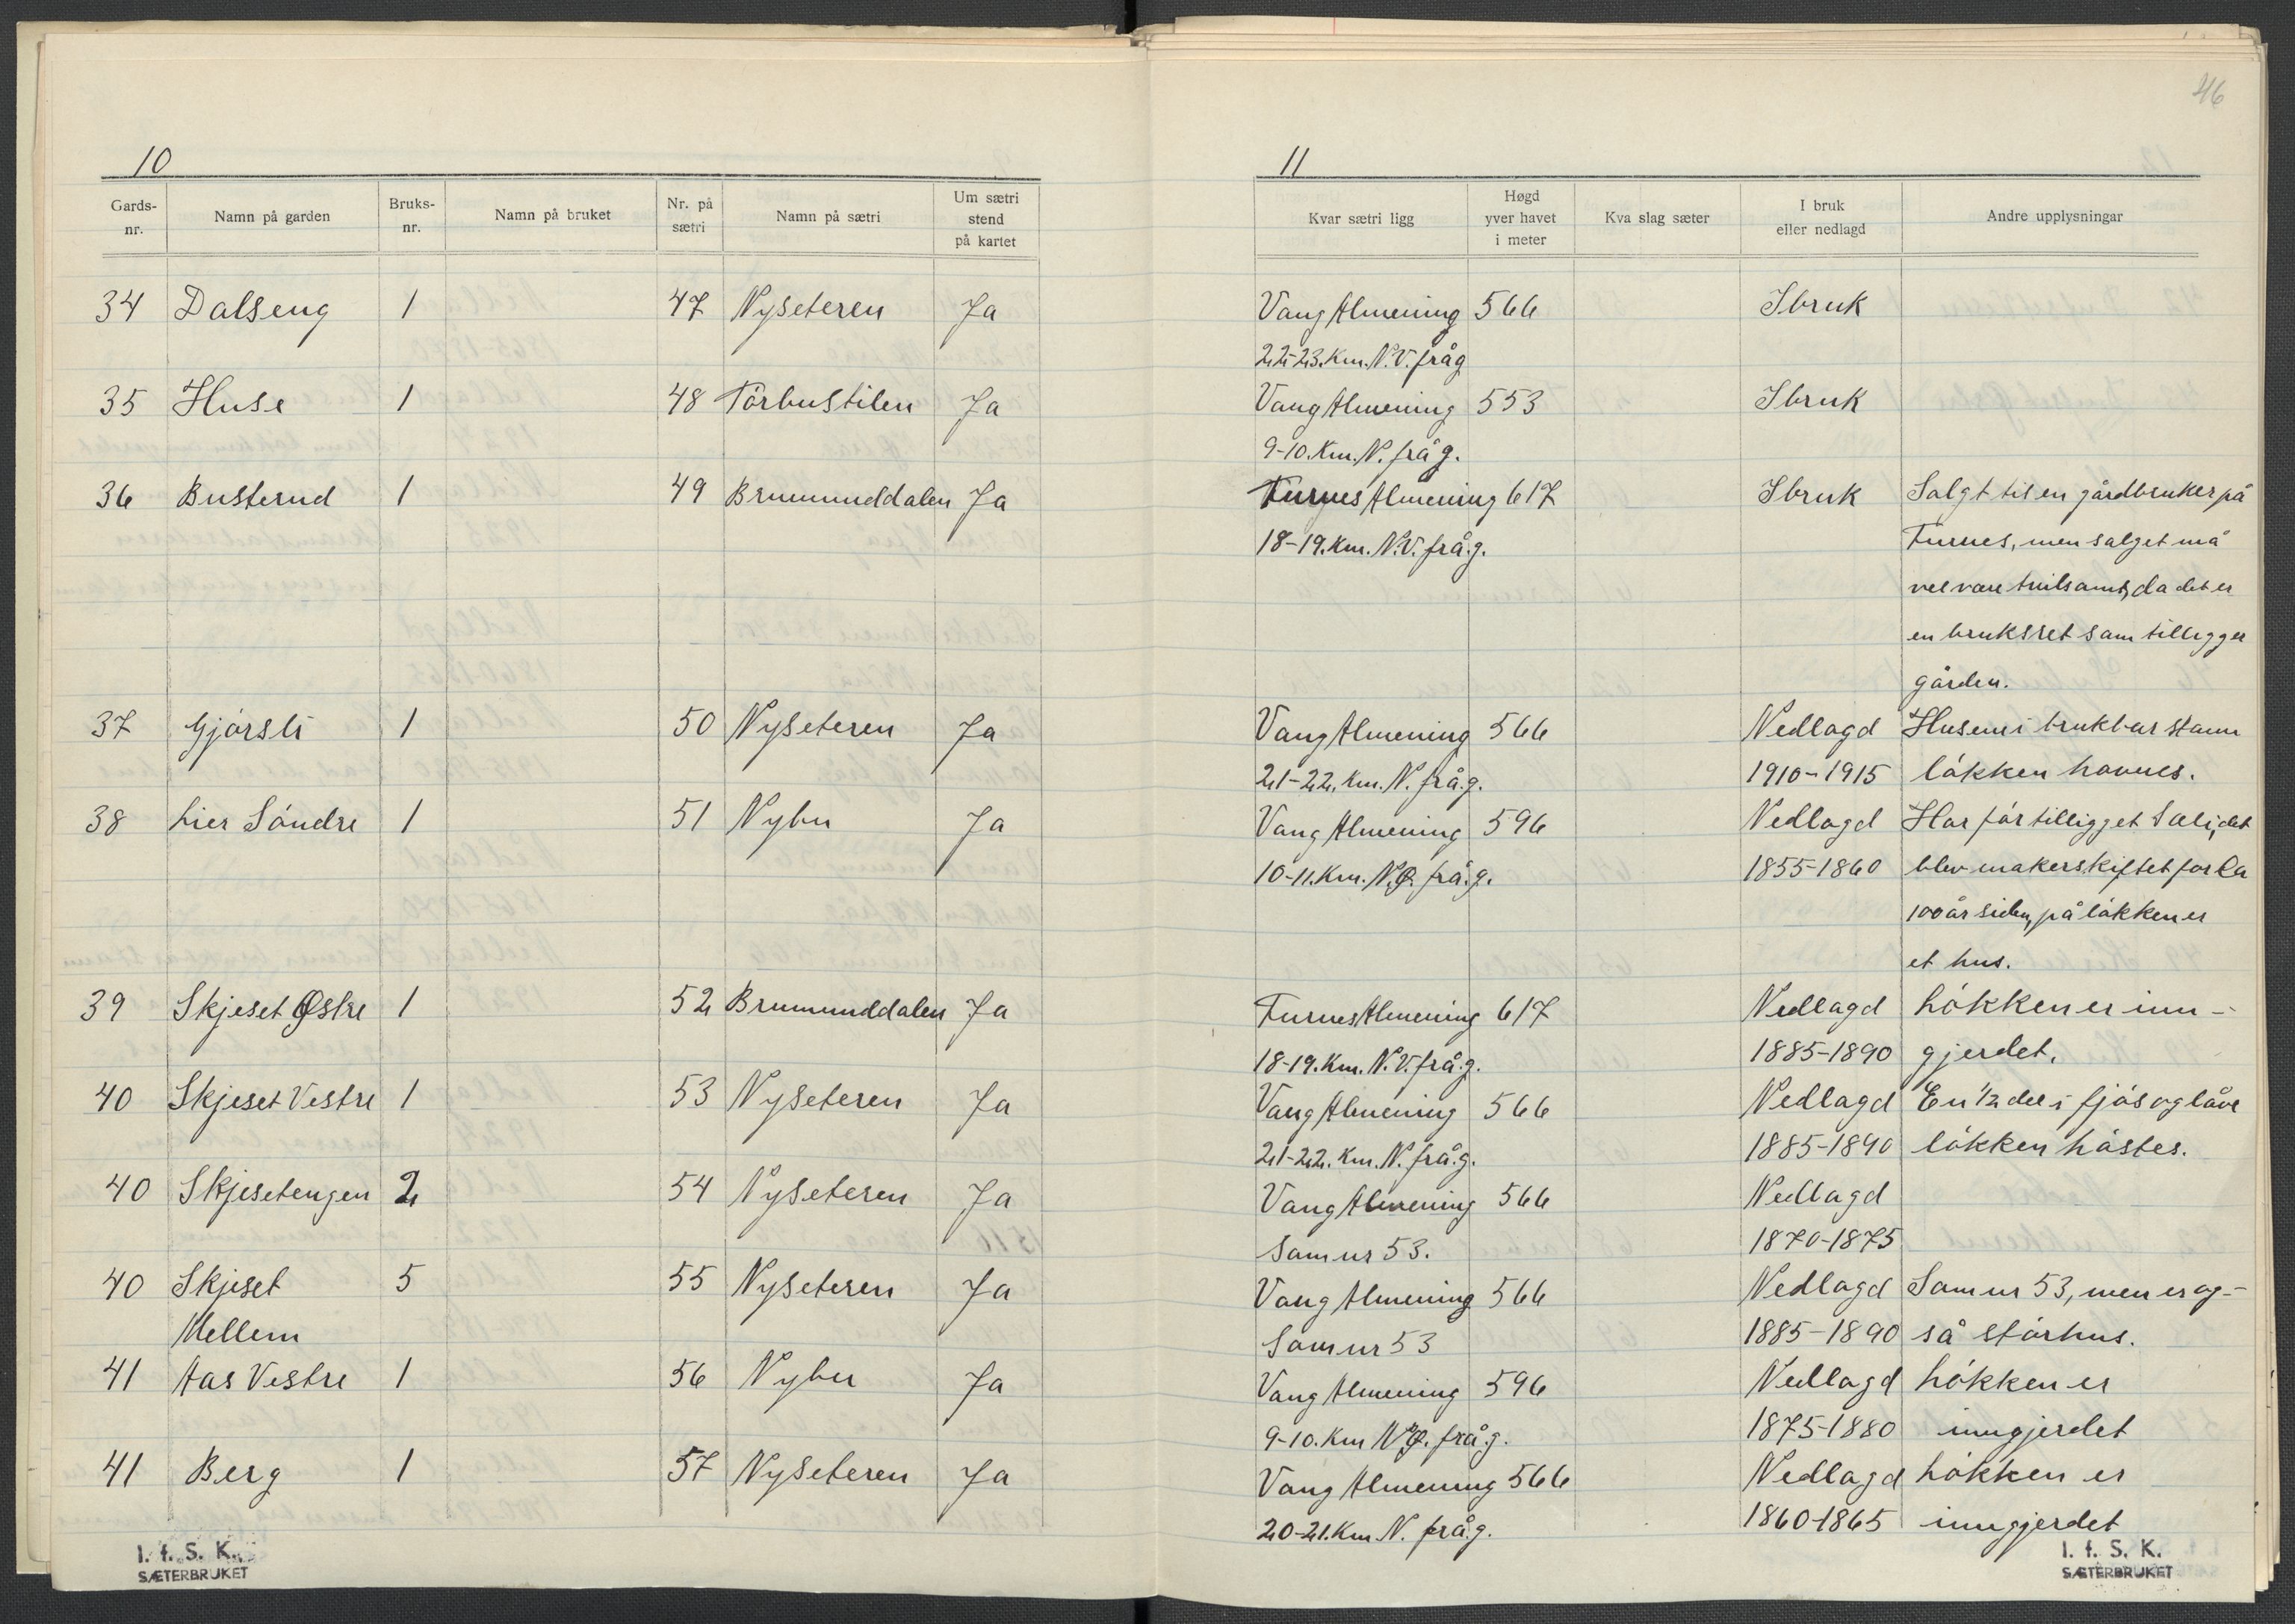 46
10
Gards-nr. Namn på garden Bruks-nr. Namn på bruket Nr. på sætri Namn på sætri Um sætri stend på kartet
34 Dalseng 1 47 Nyseteren Ja
35 Huse 1 48 Tørbustilen Ja
36 Busterud 1 49 Brumunddalen Ja
37 Gjørsli 1 50 Nyseteren Ja
38 Lier Söndre 1 51 Nybu Ja
39 Skjeset Østre 1 52 Brumunddalen Ja
40 Skjeset Vestre 1 53 Nyseteren Ja
40 Skjesetengen 2 54 Nyseteren Ja
40 Skjeset 5 55 Nyseteren Ja
Mellem
41 Aas Vestre 1 56 Nybu Ja
41 Berg 1 57 Nyseteren Ja
I. f. S. K.
SÆTERBRUKET
11
Kvar sætri ligg Høgd yver havet i meter Kva slag sæter I bruk eller nedlagd Andre upplysningar
Vang Almening 566 Ibruk
22-23. Km. N.V. fråg
Vang Almening 553 Ibruk
9-10. Km. N. frå g.
Furnes Almening 617 Ibruk Salgt til en gårdbruker på
18-19. Km. N.V. frå.g. Furnes, men salget må
vel være tvilsamt, da det er
en bruksret sam tilligger
gården.
Vang Almening 566 Nedlagd Husene i brukbar stann
21-22. Km. N. frå.g. 1910-1915 lökken havnes.
Vang Almening 596 Nedlagd Har för tilligget Sæli, det
10-11. Km. N.Ø. frå.g. 1855-1860 blev makerskiftet for Ca
100 år siden, på lökken er
et hus.
Furnes Almening 617 Nedlagd Lökken er inn-
18-19. Km. N.V. frå.g. 1885-1890 gjerdet.
Vang Almening 566 Nedlagd En 1/2 del i fjös og låve
21-22. Km. N. frå.g. 1885-1890 lökken höstes.
Vang Almening 566 Nedlagd
Sam nr 53. 1870-1875
Vang Almening 566 Nedlagd Sam nr 53, men er og-
Sam nr 53 1885-1890 så störhus.
Vang Almening 596 Nedlagd Lökken er
9-10. Km N.Ø. frå.g. 1875-1880 inngjerdet
Vang Almening 566 Nedlagd Lökken er
20-21. Km N. frå.g. 1860-1865 inngjerdet
I. f. S. K.
SÆTERBRUKET